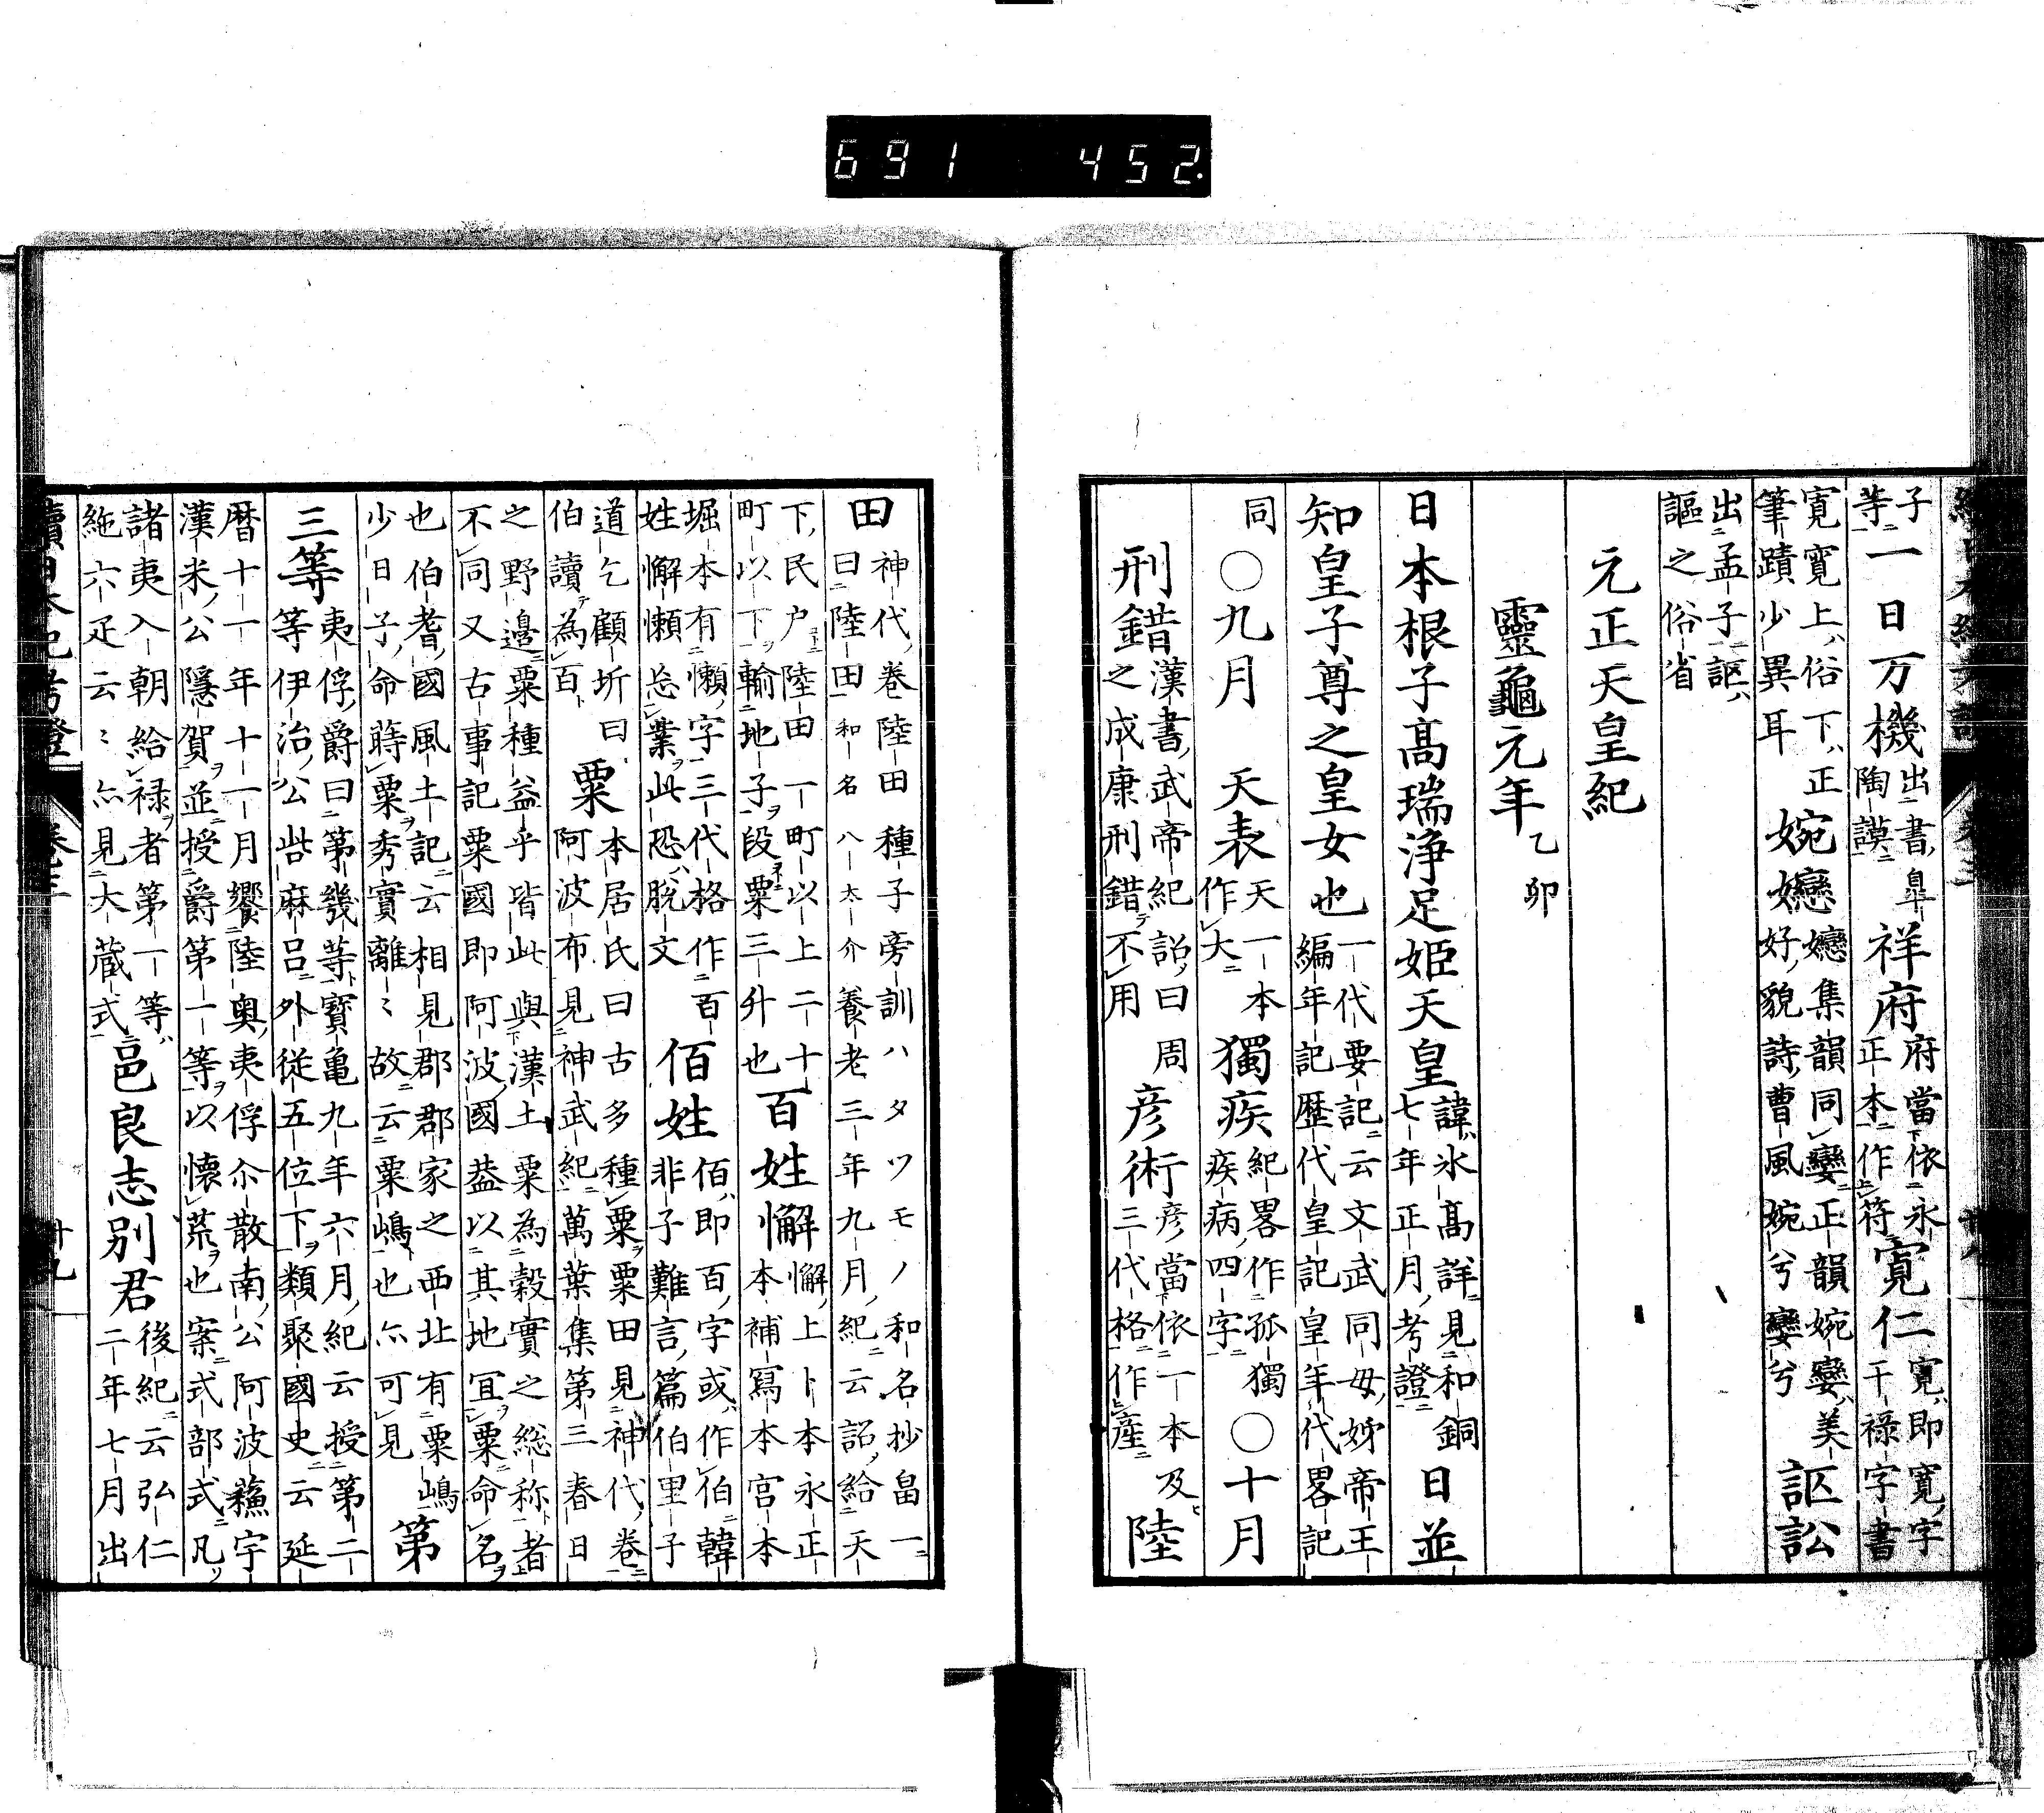 子等一日万機出書皐陶謨祥府府當依永正本作符寛仁寬即寬字干祿字書
寛寬上俗下正筆蹟少異耳婉孌孌集韻同孌正韻婉孌美好貌詩曹風婉兮孌兮訟
出孟子謳謳之俗省
元正天皇紀
靈龜元年乙卯
日本根子髙瑞浄足姫天皇諱氷髙詳見和銅七年正月考證日並
知皇子尊之皇女也一代要記云文武同母姉帝王編年記歴代皇記皇年代畧記
同〇九月 天表天一本作大獨疾紀畧作孤獨疾病四字〇十月
刑錯漢書武帝紀詔曰周之成康刑錯不用彦術彦當依一本及三代格作産陸
田神代卷陸田種子旁訓ハタツモノ和名抄畠一曰陸田和名八太介養老三年九月紀云詔給天
下民户陸田一町以上二十町以下輸地子段粟三升也百姓懈懈上卜本永正本補寫本宮本
堀本有懶字三代格作百姓懈懶怠業此恐脱文佰姓佰即百字或作伯韓非子難言篇伯里子
道乞顧圻曰伯讀為百粟本居氏曰古多種粟粟田見神代卷阿波布見神武紀萬葉集第三春日
之野邊粟種益乎皆此與漢土粟為穀實之総称者不同又古事記粟國即阿波國葢以其地宜粟命名
也伯耆國風土記云相見郡郡家之西北有粟嶋少日子命蒔粟秀實離〻故云粟嶋也亦可見第
三等夷俘爵曰第幾等寳亀九年六月紀云授第二等伊治公呰麻呂外從五位下類聚國史云延
暦十一年十一月饗陸奥夷俘尒散南公阿波蘓宇漢米公隱賀並授爵第一等以懐荒也案式部式凡
諸夷入朝給禄者第一等絁六疋云〻亦見大藏式邑良志別君後紀云弘仁二年七月出
續日本紀考證 卷三 廿九
691 452.